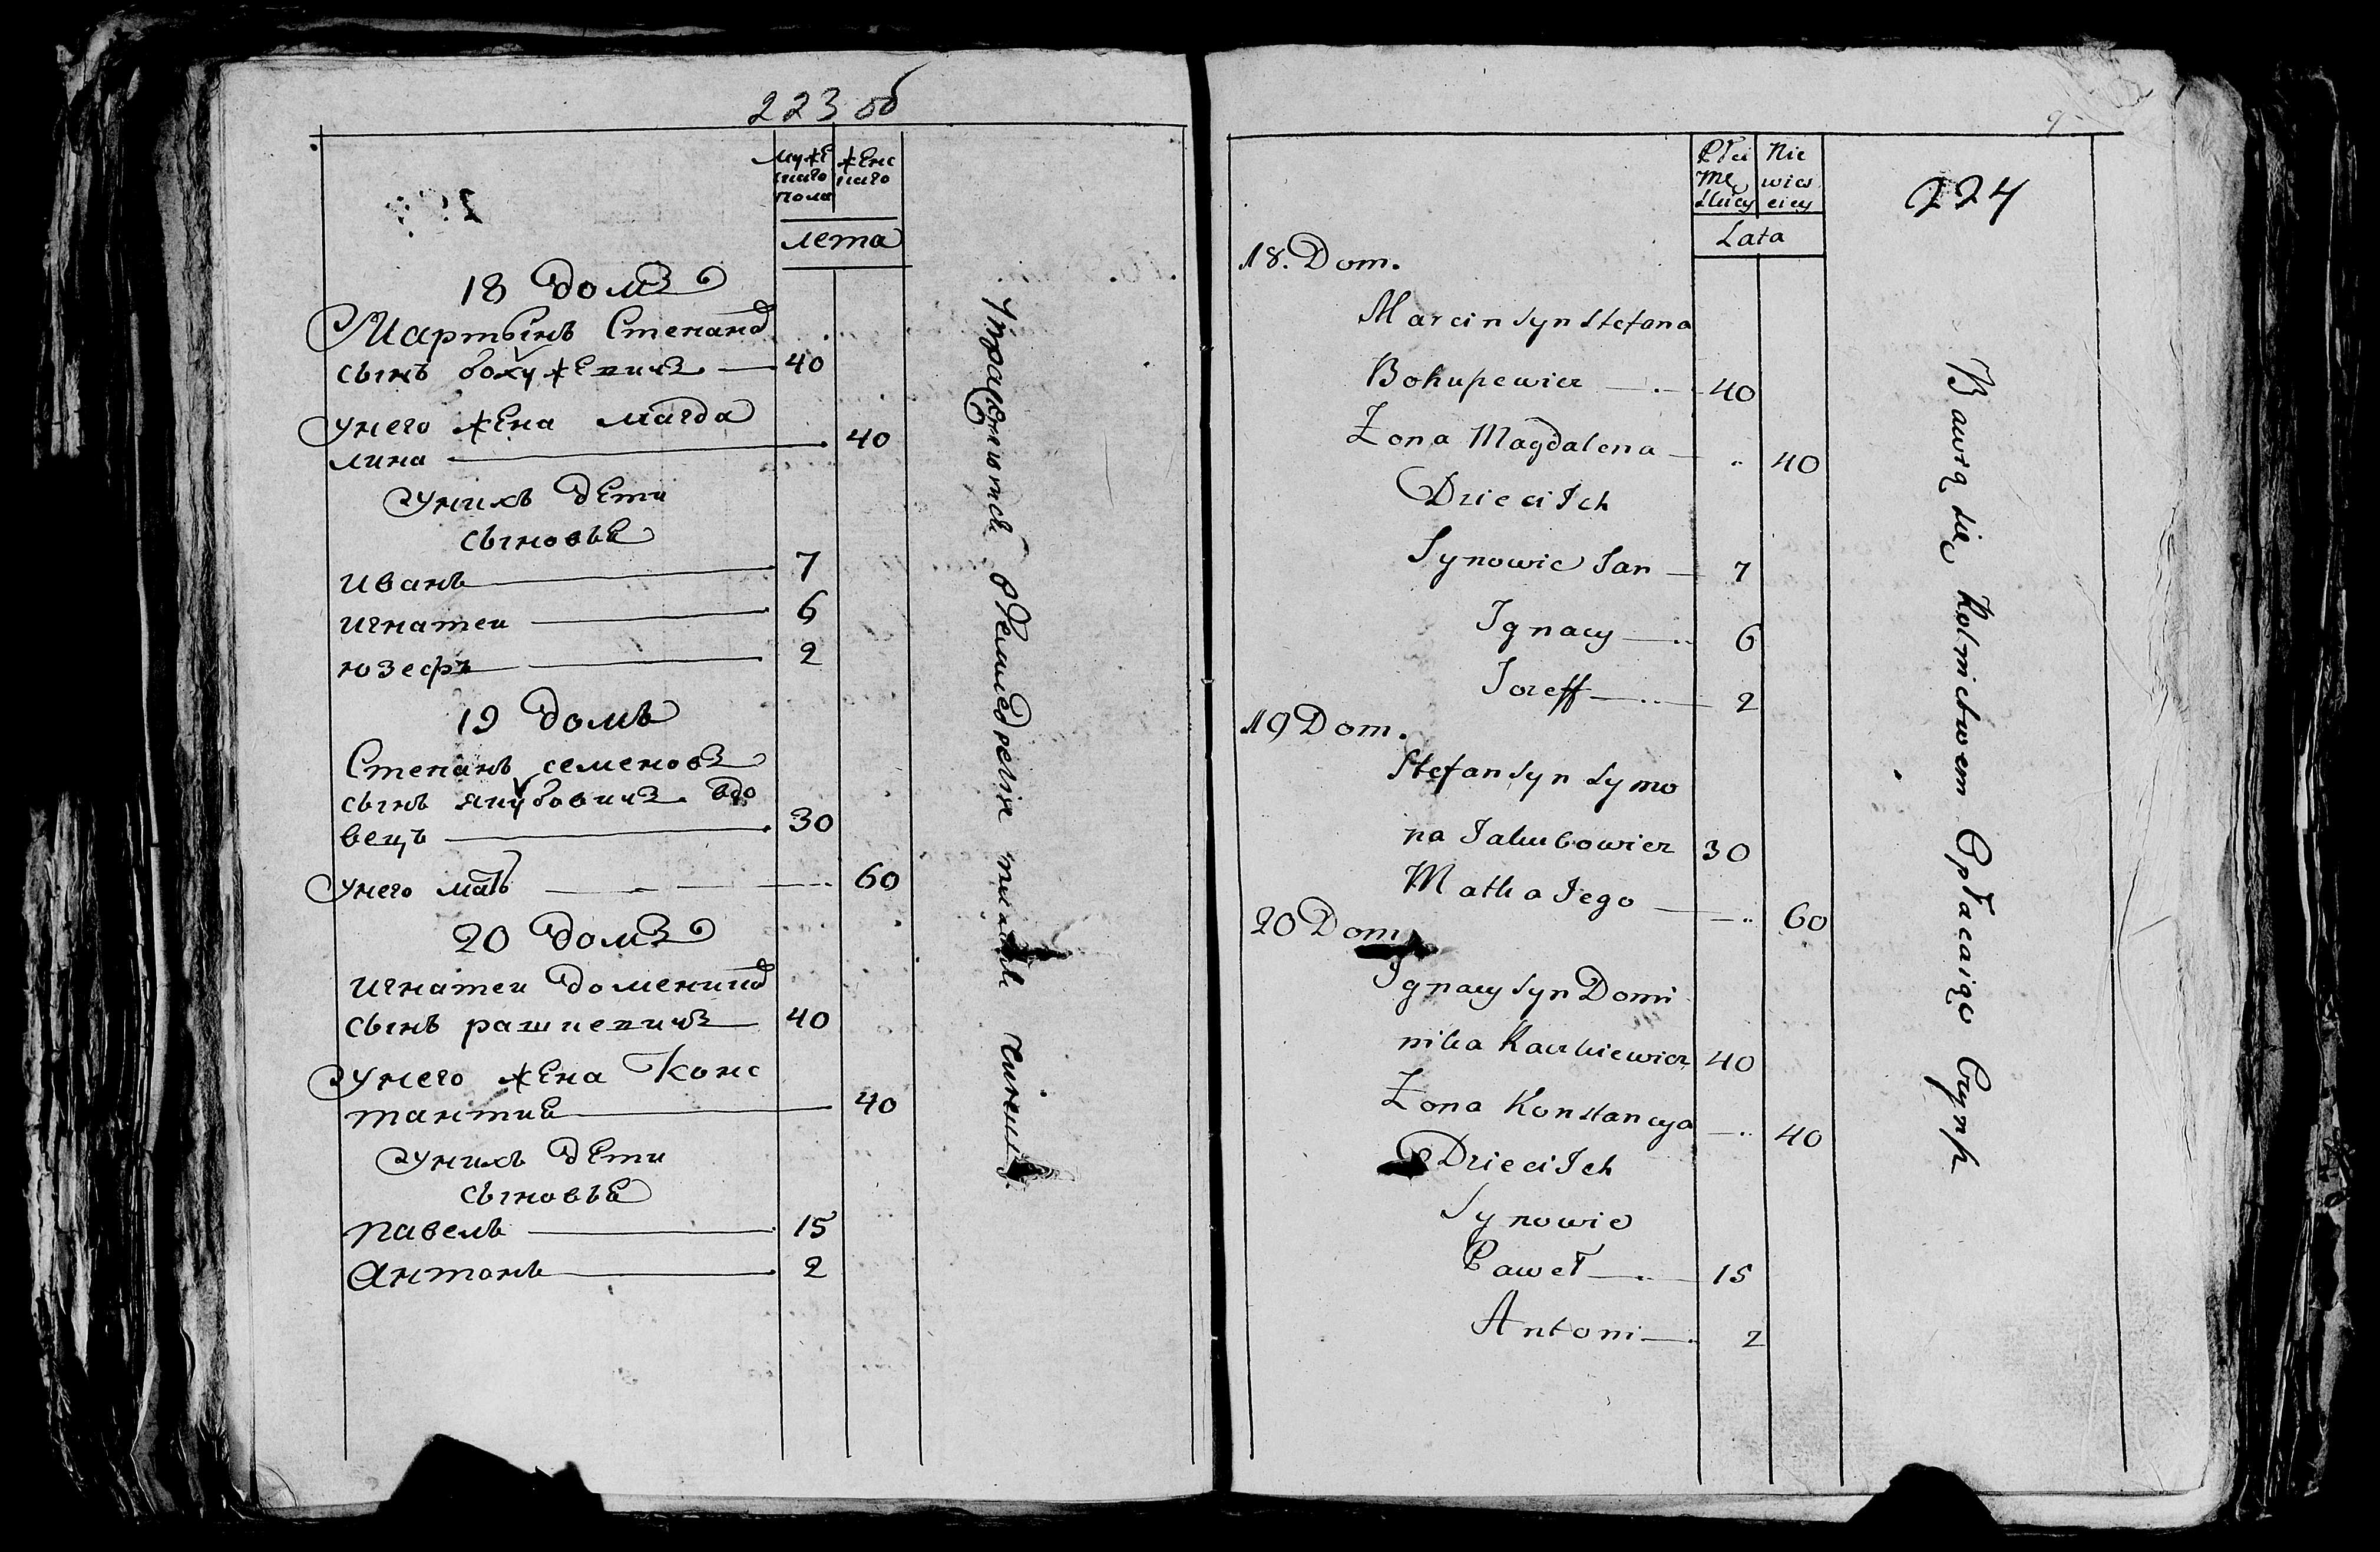 223 об
муже жено
скаго скаго
пола
лета
18 домъ
Мартынъ Степанов
сынъ бохужевичъ — 40
унего жена магда
лина — 40
унихъ дети
сыновья
иванъ — 7
игнатеи — 6
юзефъ — 2
19 домъ
Степанъ семеновъ
сынъ якубовичъ вдо
вецъ — 30
унего мать — 60
20 домъ
игнатеи доменико
сынъ рашкевичъ — 40
унего жена Конс
тантия — 40
унихъ дети
сыновья
павелъ — 15
Антонъ — 2
Упражняются вземледелии
224
Płci Nie
Mę wies
skiey ciey
Lata
18. Dom.
Marcin syn Stefana
Bohupewicz — 40
Żona Magdalena — 40
Dzieci Ich
Synowie Jan — 7
Ignacy — 6
Jozeff — 2
19 Dom.
Stefan syn Symo
na Jakubowicz 30
Matka Jego — 60
20 Dom.
Ignacy syn Domi
nika Raczkiewicz 40
Żona Konstancya — 40
Dzieci Ich
Synowie
Paweł — 15
Antoni — 2
Bawią się Rolnictwem Opłacaiąc Czynsz